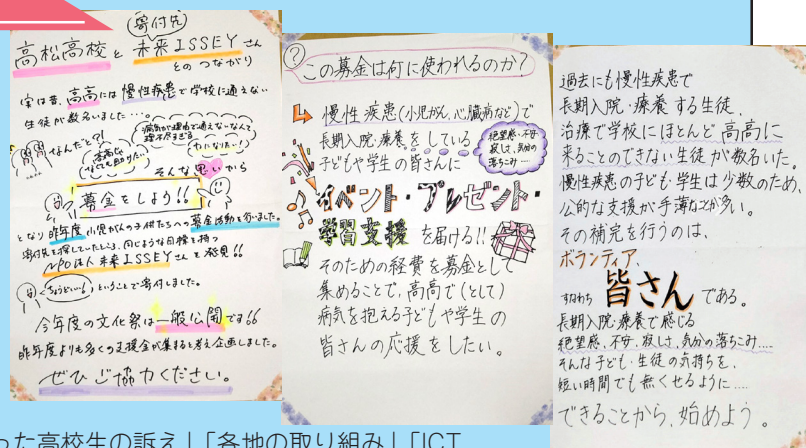 寄付先
高松高校と未来ISSEYさん
とのつながり
実は昔、高高には慢性疾患で学校に通えない
生徒が数名いました…。
なんだと?!
病気が理由で通えないなんて
理不尽すぎる
本高で
なんでも助けたい
力になりたい!
そんな思いから
募金をしよう!!
となり昨年度小児がんの子供たちへの募金活動を行いました。
寄付先を探していたところ、同じような目標を持つ
NPO法人未来ISSEYさんを発見!!
ちょうどいい!
ということで寄付しました。
今年度の文化祭は一般公開です!!
昨年度よりも多くの支援金が集まると考え企画しました。
ぜひご協力ください。
? この募金は何に使われるのか?
慢性疾患(小児がん、心臓病など)で
長期入院・療養をしている
子どもや学生の皆さんに
絶望感・不安
寂しさ、気分の
落ちこみ…
イベント・プレゼント・
学習支援を届ける!!
そのための経費を募金として
集めることで、高高で(として)
病気を抱える子どもや学生の
皆さんの応援をしたい。
過去にも慢性疾患で
長期入院・療養する生徒、
治療で学校にほとんど高高に
来ることのできない生徒が数名いた。
慢性疾患の子ども・学生は少数のため、
公的な支援が手薄なことが多い。
その補完を行うのは、
ボランティア、
すなわち皆さんである。
長期入院・療養で感じる
絶望感、不安、寂しさ、気分の落ちこみ….
そんな子ども・生徒の気持ちを、
短い時間でも無くせるように….
できることから、始めよう。
った高校生の訴え」「各地の取り組み」「ICT